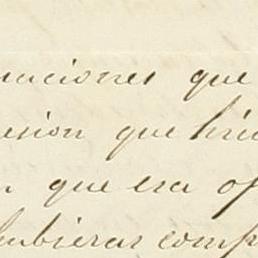 uaciones que
esion que hici
n que era of
hubieran comp